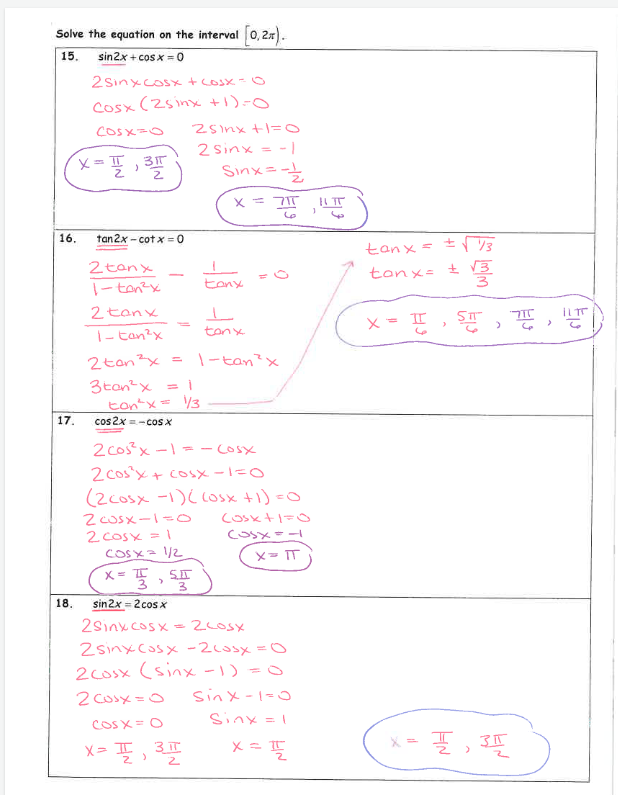 Solve the equation on the interval [0, 2π).
15. sin2x + cos x = 0
2sinxcosx + cosx = 0
cosx (2sinx +1)=0
cosx=0 2sinx +1=0
2sinx = -1
x = π/2 , 3π/2 sinx = -1/2
x = 7π/6 , 11π/6
16. tan2x - cot x = 0
2tanx / 1-tan²x - 1/tanx = 0
2tanx / 1-tan²x = 1/tanx
2tan²x = 1-tan²x
3tan²x = 1
tan²x = 1/3
tanx = ±√1/3
tanx = ± √3/3
x = π/6 , 5π/6 , 7π/6 , 11π/6
17. cos2x = -cos x
2cos²x -1 = -cosx
2cos²x + cosx -1=0
(2cosx -1)(cosx +1) =0
2cosx-1=0 cosx+1=0
2cosx = 1 cosx = -1
cosx = 1/2 x = π
x = π/3 , 5π/3
18. sin2x = 2cos x
2sinxcosx = 2cosx
2sinxcosx -2cosx =0
2cosx (sinx -1) =0
2cosx=0 sinx-1=0
cosx=0 sinx = 1
x = π/2 , 3π/2 x = π/2
x = π/2 , 3π/2